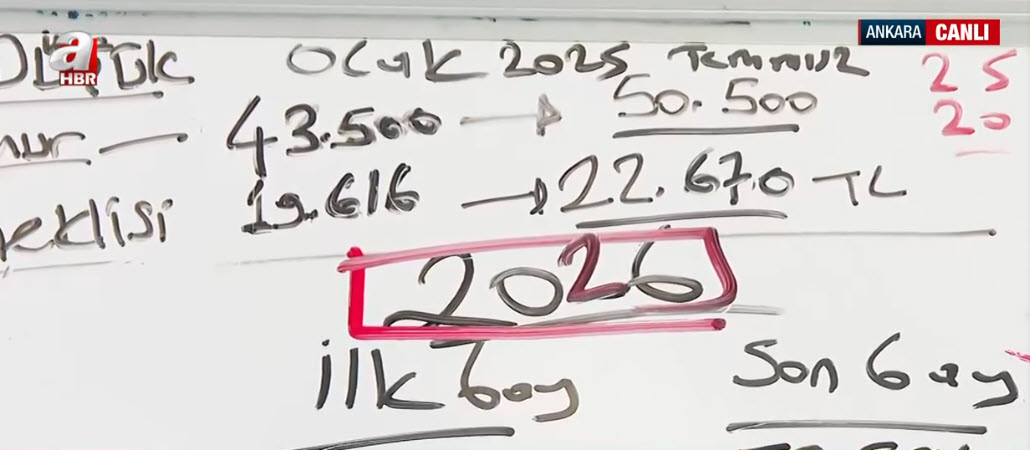 a
HBR
ANKARA CANLI
Ocak 2025 Temmuz
25
43.500 → 50.500
20
eklisi 19.616 → 22.670 TL
2026
ilk 6 ay Son 6 ay